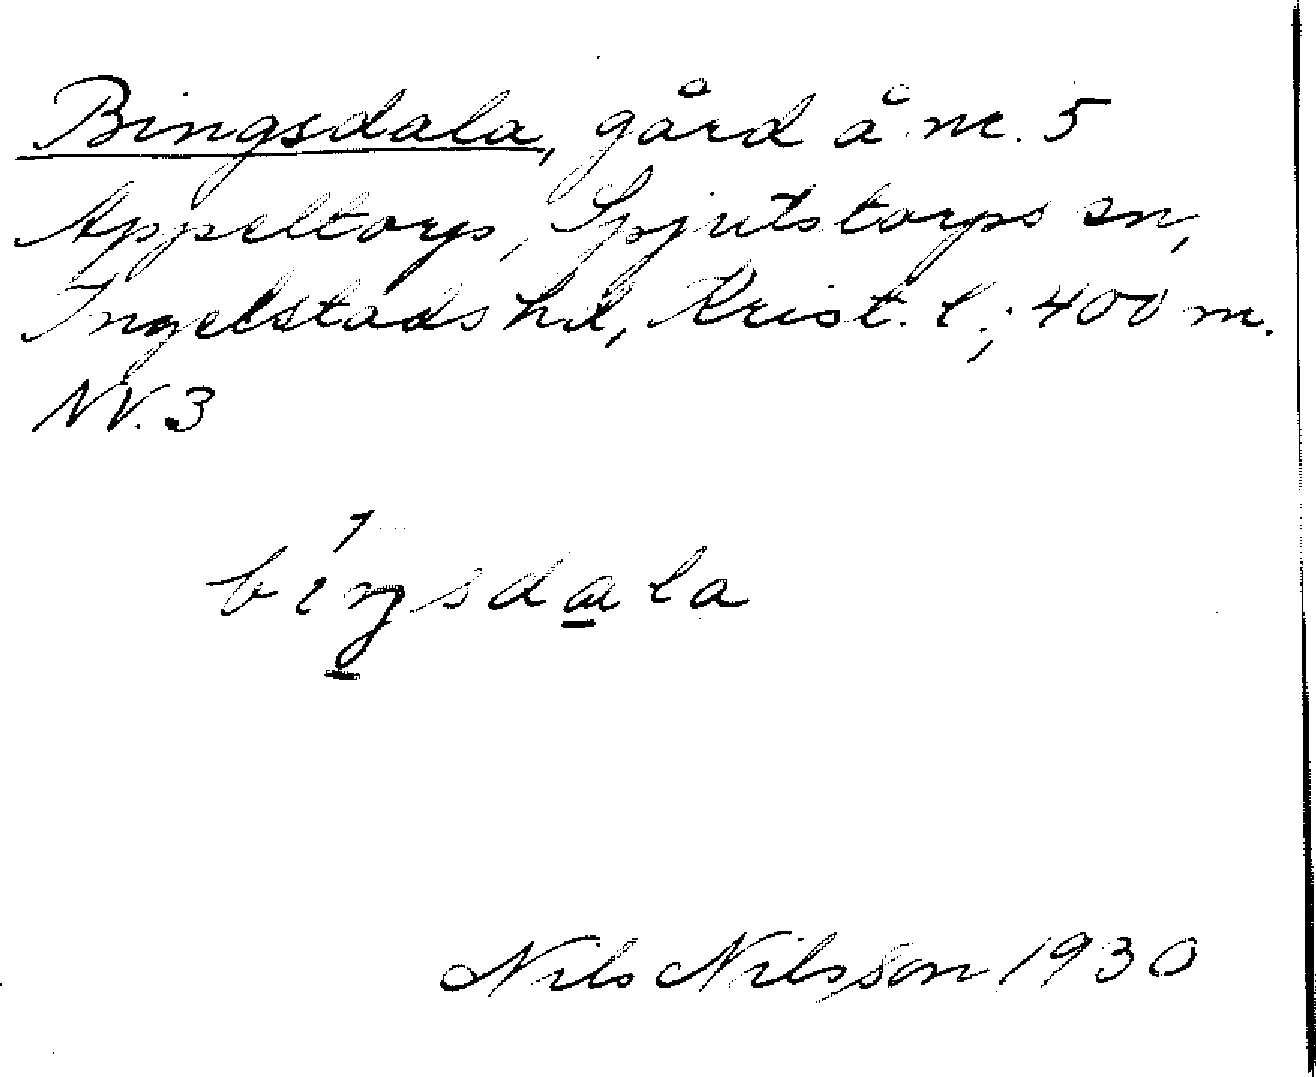 Bingsdala, gård å nr. 5
Appeltorp, Spjutstorps sn,
Ingelstads hd, Krist. l.; 400 m.
NV. 3
bíŋsdɑla
Nils Nilsson 1930